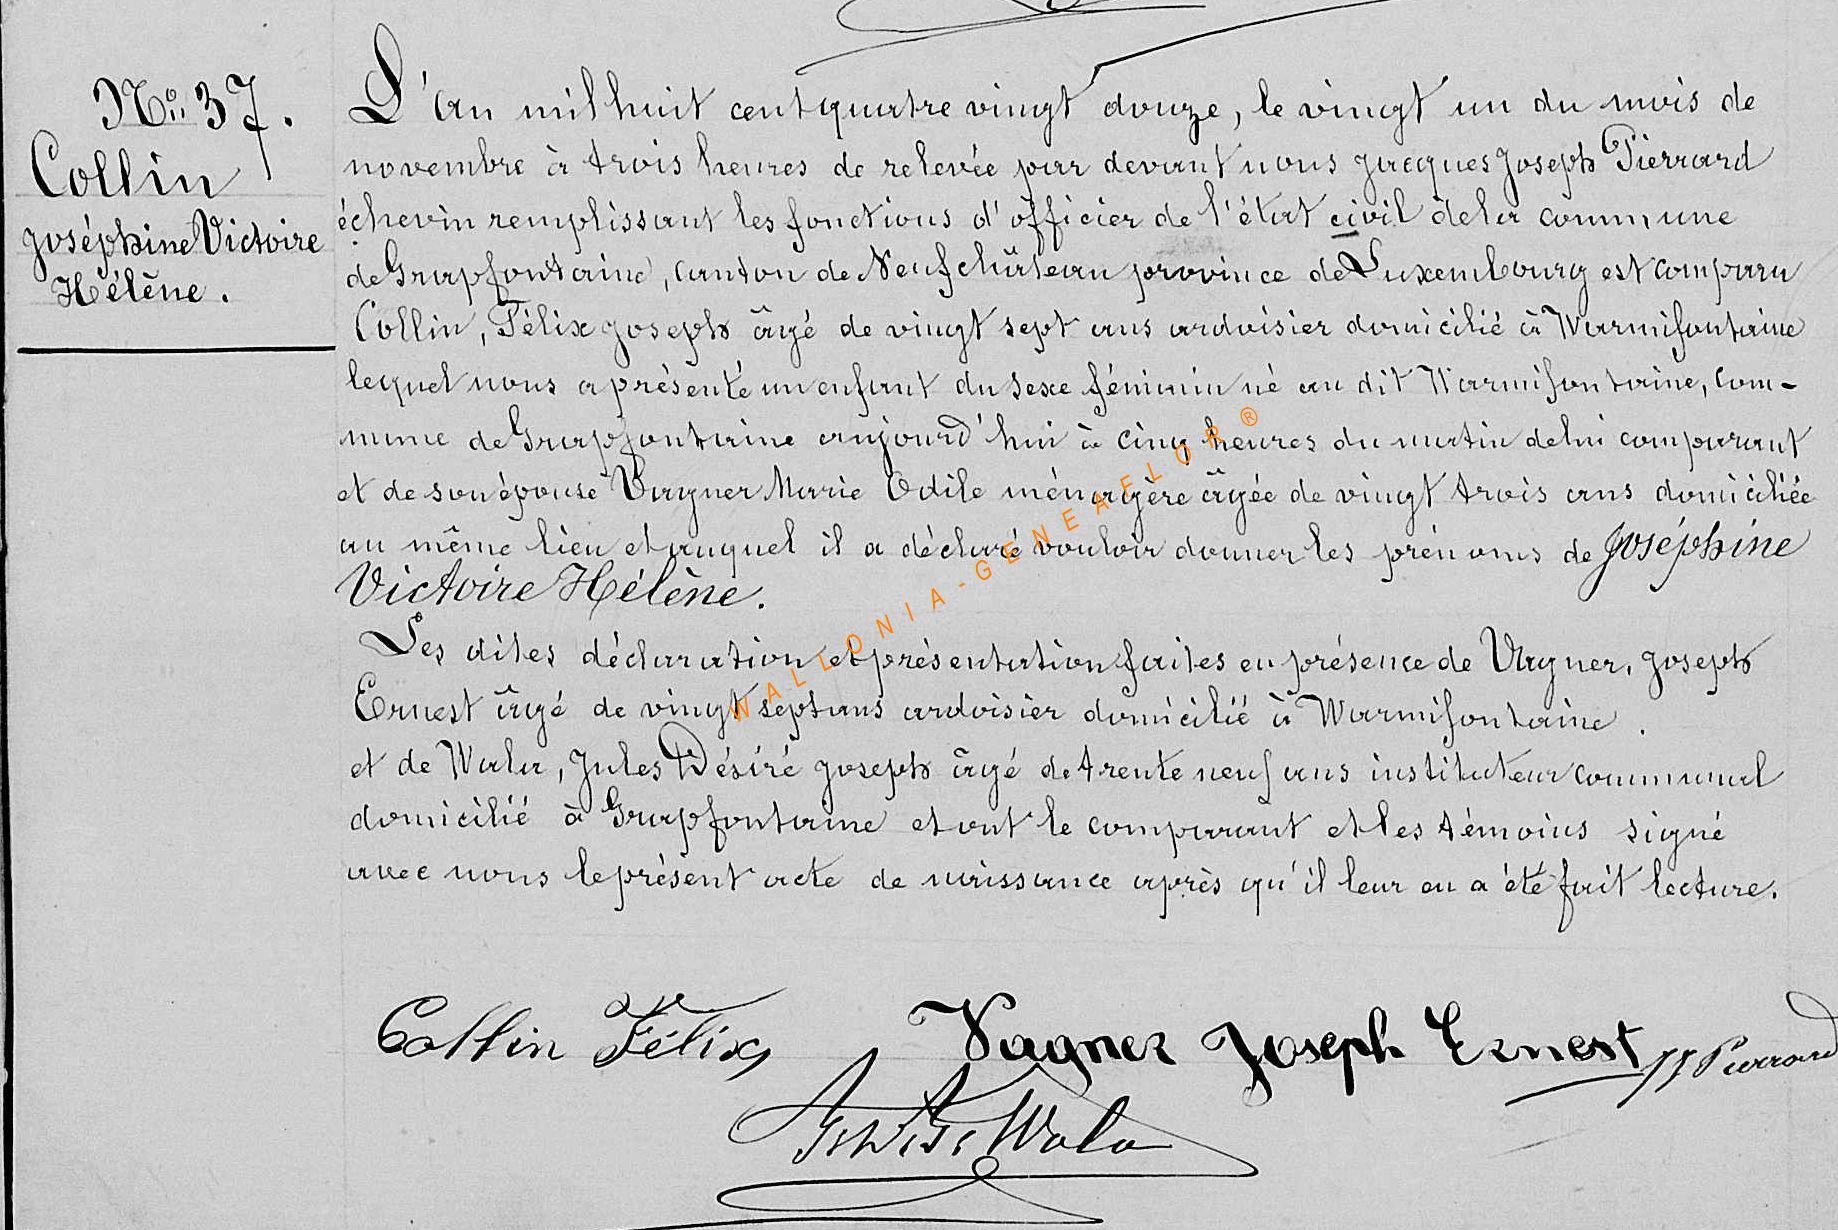 No 37.
Collin
Joséphine Victoire
Hélène.
L'an mil huit cent quatre vingt douze, le vingt un du mois de
novembre à trois heures de relevée par devant nous Jacques Joseph Pierrard
échevin remplissant les fonctions d'officier de l'état civil de la commune
de Grapfontaine, canton de Neufchâteau province de Luxembourg est comparu
Collin, Félix Joseph âgé de vingt sept ans ardoisier domicilié à Warmifontaine
lequel nous a présenté un enfant du sexe féminin né au dit Warmifontaine, com-
mune de Grapfontaine aujourd'hui à cinq heures du matin de lui comparant
et de son épouse Vagner Marie Odile ménagère âgée de vingt trois ans domiciliée
au même lieu et auquel il a déclaré vouloir donner les prénoms de Joséphine
Victoire Hélène.
Les dites déclaration et présentation faites en présence de Vagner, Joseph
Ernest âgé de vingt sept ans ardoisier domicilié à Warmifontaine.
et de Wala, Jules Désiré Joseph âgé de trente neuf ans instituteur communal
domicilié à Grapfontaine et ont le comparant et les témoins signé
avec nous le présent acte de naissance après qu'il leur en a été fait lecture.
Collin Félix Vagner Joseph Ernest JJ Pierrard
Wala
WALLONIA-GENEAFLOR®